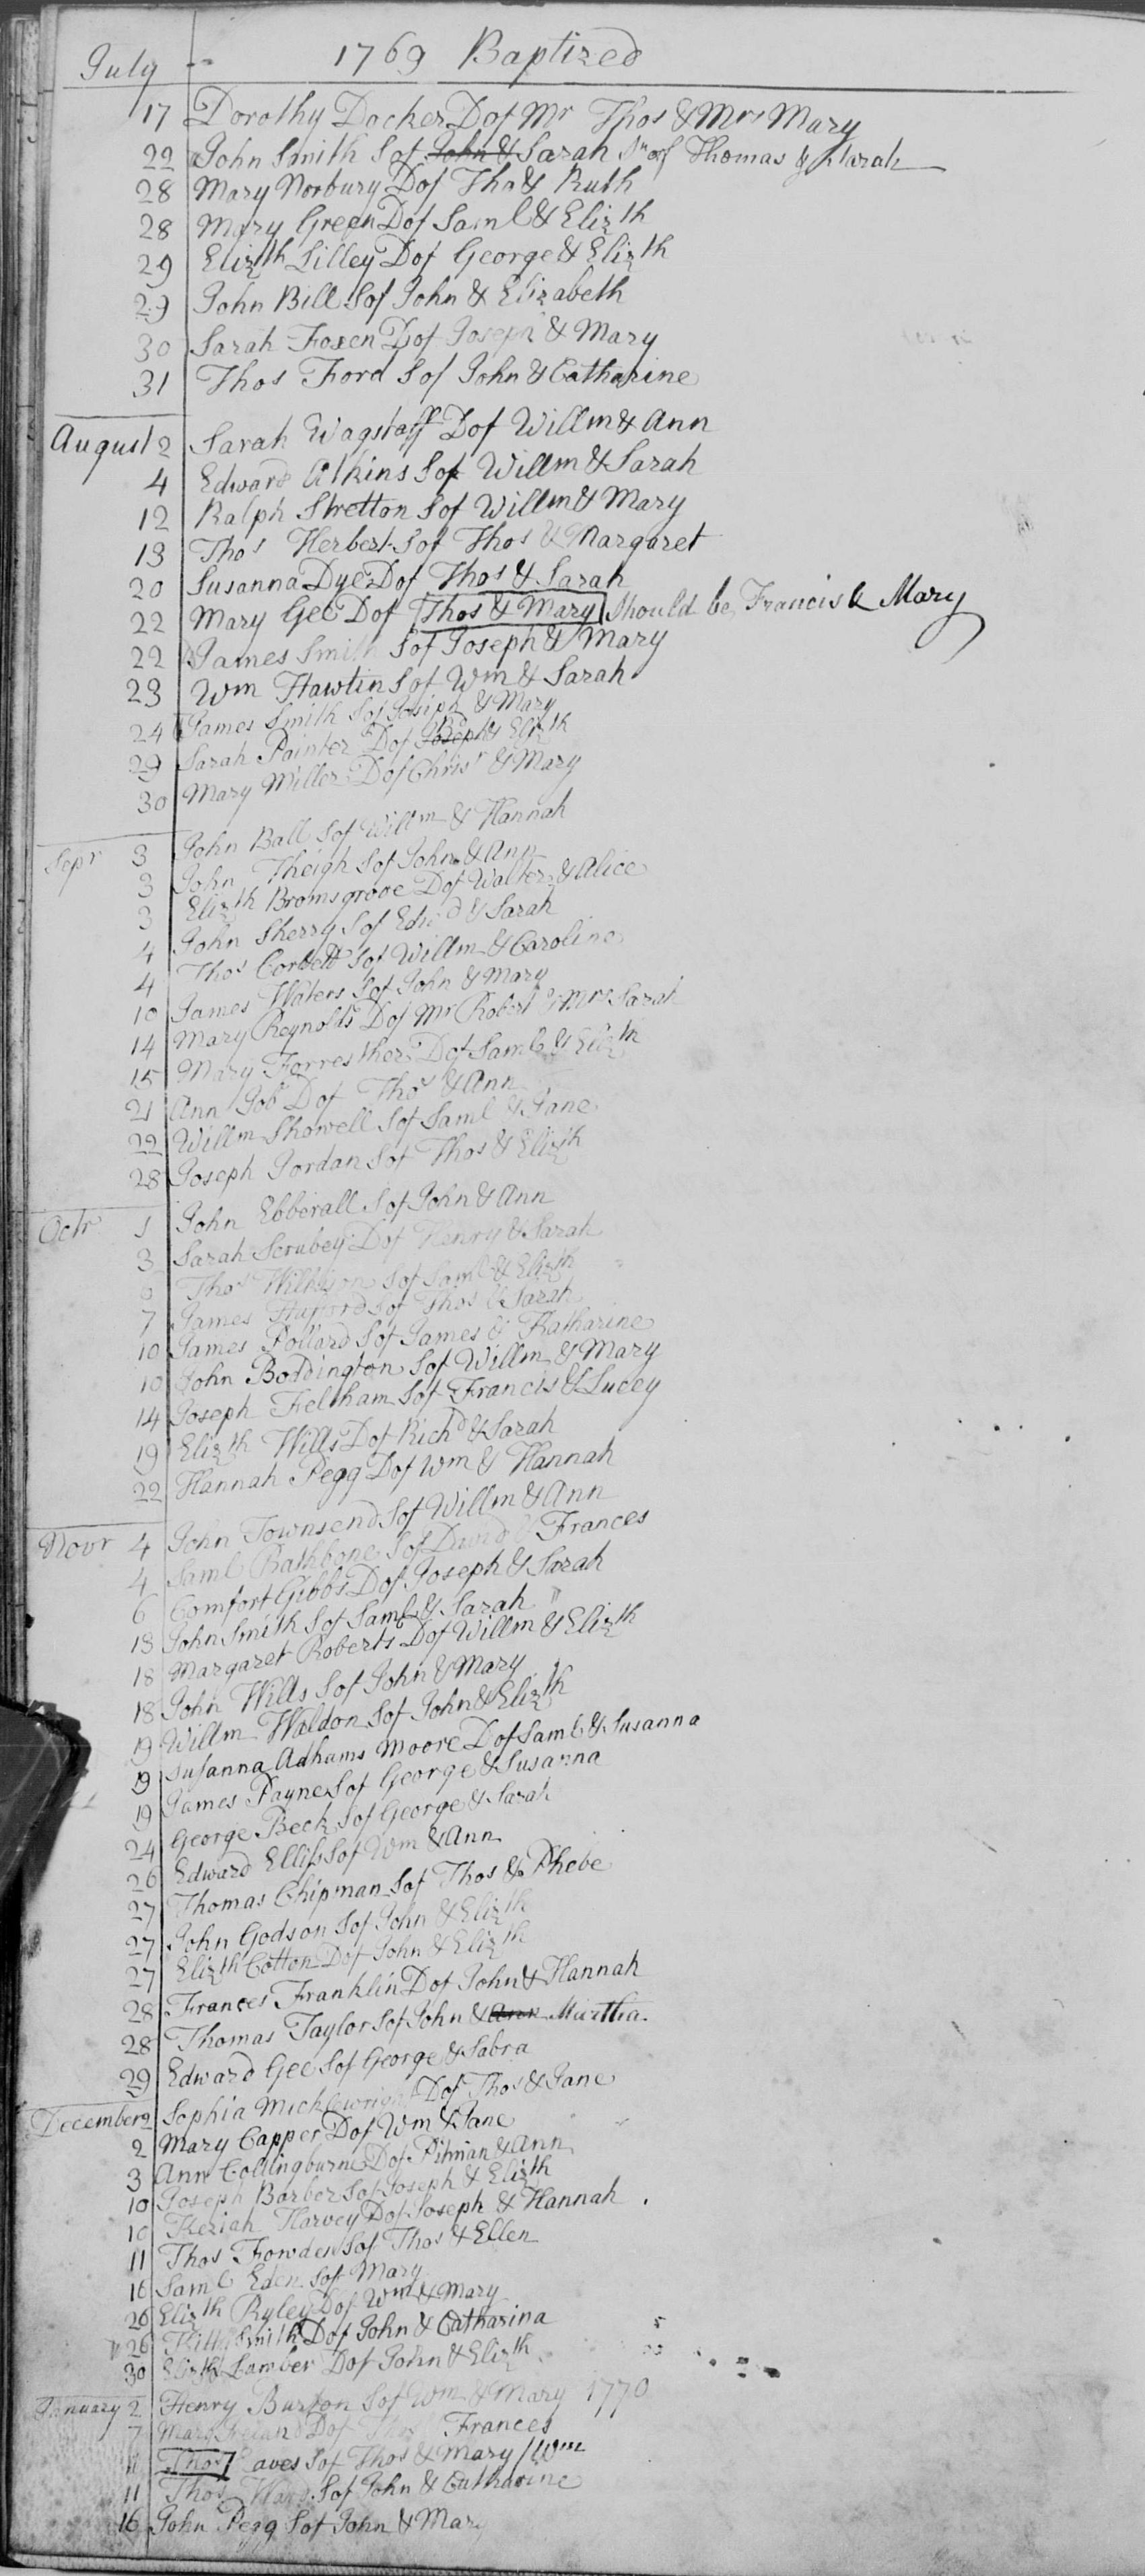 July 1769 Baptized
17 Dorothy Docker Dof Mr Thos & Mrs Mary
22 John Smith Sof John & Sarah Sn of Thomas & Sarah
28 Mary Norbury Dof Tho & Ruth
28 Mary Green Dof Saml & Elizth
29 Elizth Lilley Dof George & Elizth
29 John Bill Sof John & Elizabeth
30 Sarah Foxen Dof Joseph & Mary
31 Thos Ford Sof John & Catharine
August 2 Sarah Wagstaff Dof Willm & Ann
4 Edward Atkins Sof Willm & Sarah
12 Ralph Stretton Sof Willm & Mary
13 Thos Herbert Sof Thos & Margaret
20 Susanna Dye Dof Thos & Sarah
22 Mary Gee Dof Thos & Mary Should be Francis & Mary
22 James Smith Sof Joseph & Mary
23 Wm Hawtin Sof Wm & Sarah
24 James Smith Sof Joseph & Mary
29 Sarah Painter Dof Joseph & Elizth
30 Mary Miller Dof Chrisr & Mary
Sepr 3 John Ball Sof Willm & Hannah
3 John Theigh Sof John & Ann
3 Elizth Bromsgrove Dof Walter & Alice
4 John Sherry Sof Edwd & Sarah
4 Thos Corbett Sof Willm & Caroline
10 James Waters Sof John & Mary
14 Mary Reynolds Dof Mr Robert & Mrs Sarah
15 Mary Forresther Dof Saml & Elizth
21 Ann Job Dof Thos & Ann
22 Willm Showell Sof Saml & Jane
28 Joseph Jordan Sof Thos & Elizth
Octr 1 John Ebberall Sof John & Ann
3 Sarah Scrubey Dof Henry & Sarah
Thos Wilkinson Sof Saml & Elizth
7 James Sof Thos & Sarah
10 James Pollard Sof James & Katharine
10 John Boddington Sof Willm & Mary
14 Joseph Feltham Sof Francis & Lucey
19 Elizth Wills Dof Richd & Sarah
22 Hannah Pegg Dof Wm & Hannah
Novr 4 John Townsend Sof Willm & Ann
4 Saml Rathbone Sof David & Frances
6 Comfort Gibbs Dof Joseph & Sarah
13 John Smith Sof Saml & Sarah
18 Margaret Roberts Dof Willm & Elizth
18 John Wills Sof John & Mary
19 Willm Waldon Sof John & Elizth
19 Susanna Adhams Moore Dof Saml & Susanna
19 James Payne Sof George & Susanna
24 George Beck Sof George & Sarah
26 Edward Elliss Sof Wm & Ann
27 Thomas Chipman Sof Thos & Phebe
27 John Godson Sof John & Elizth
27 Elizth Cotton Dof John & Elizth
28 Frances Franklin Dof John & Hannah
28 Thomas Taylor Sof John & Ann Martha
29 Edward Gee Sof George & Sabra
December 2 Sophia Micklewright Dof Thos & Jane
2 Mary Capper Dof Wm & Jane
3 Ann Collingburne Dof Pitman & Ann
10 Joseph Barber Sof Joseph & Elizth
10 Keziah Harvey Dof Joseph & Hannah
11 Thos Fowden Sof Thos & Ellen
16 Saml Eden Sof Mary
26 Elizth Ryley Dof Wm & Mary
26 Kitty Smith Dof John & Catharina
30 Elizth Lamber Dof John & Elizth
January 2 Henry Burton Sof Wm & Mary 1770
7 Mary Ireland Dof Frances
11 Thos Eaves Sof Thos & Mary / Wm
11 Thos Ward Sof John & Catharine
16 John Pegg Sof John & Mary